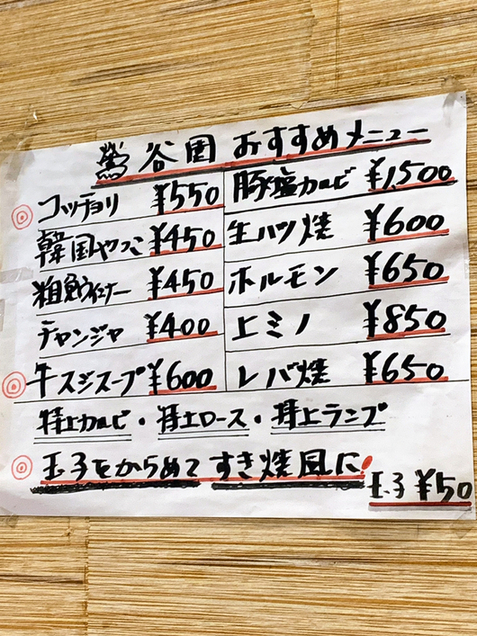 鶯谷園 おすすめメニュー
◎ コッチョリ ¥550
韓国やっこ ¥450
粗挽ウィンナー ¥450
チャンジャ ¥400
◎ 牛スジスープ ¥600
豚塩カルビ ¥1,500
生ハツ焼 ¥600
ホルモン ¥650
上ミノ ¥850
レバ焼 ¥650
特上カルビ・特上ロース・特上ランプ
◎ 玉子をからめてすき焼風に!
玉子 ¥50